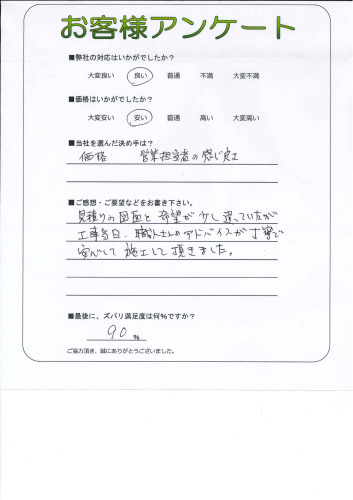 お客様アンケート
■弊社の対応はいかがでしたか？
大変良い 良い 普通 不満 大変不満
■価格はいかがでしたか？
大変安い 安い 普通 高い 大変高い
■当社を選んだ決め手は？
価格 営業担当者の感じ良さ
■ご感想・ご要望などをお書き下さい。
見積りの図面と希望が少し違っていたが
工事当日、職人さんのアドバイスが丁寧で
安心して施工して頂きました。
■最後に、ズバリ満足度は何％ですか？
90 ％
ご協力頂き、誠にありがとうございました。